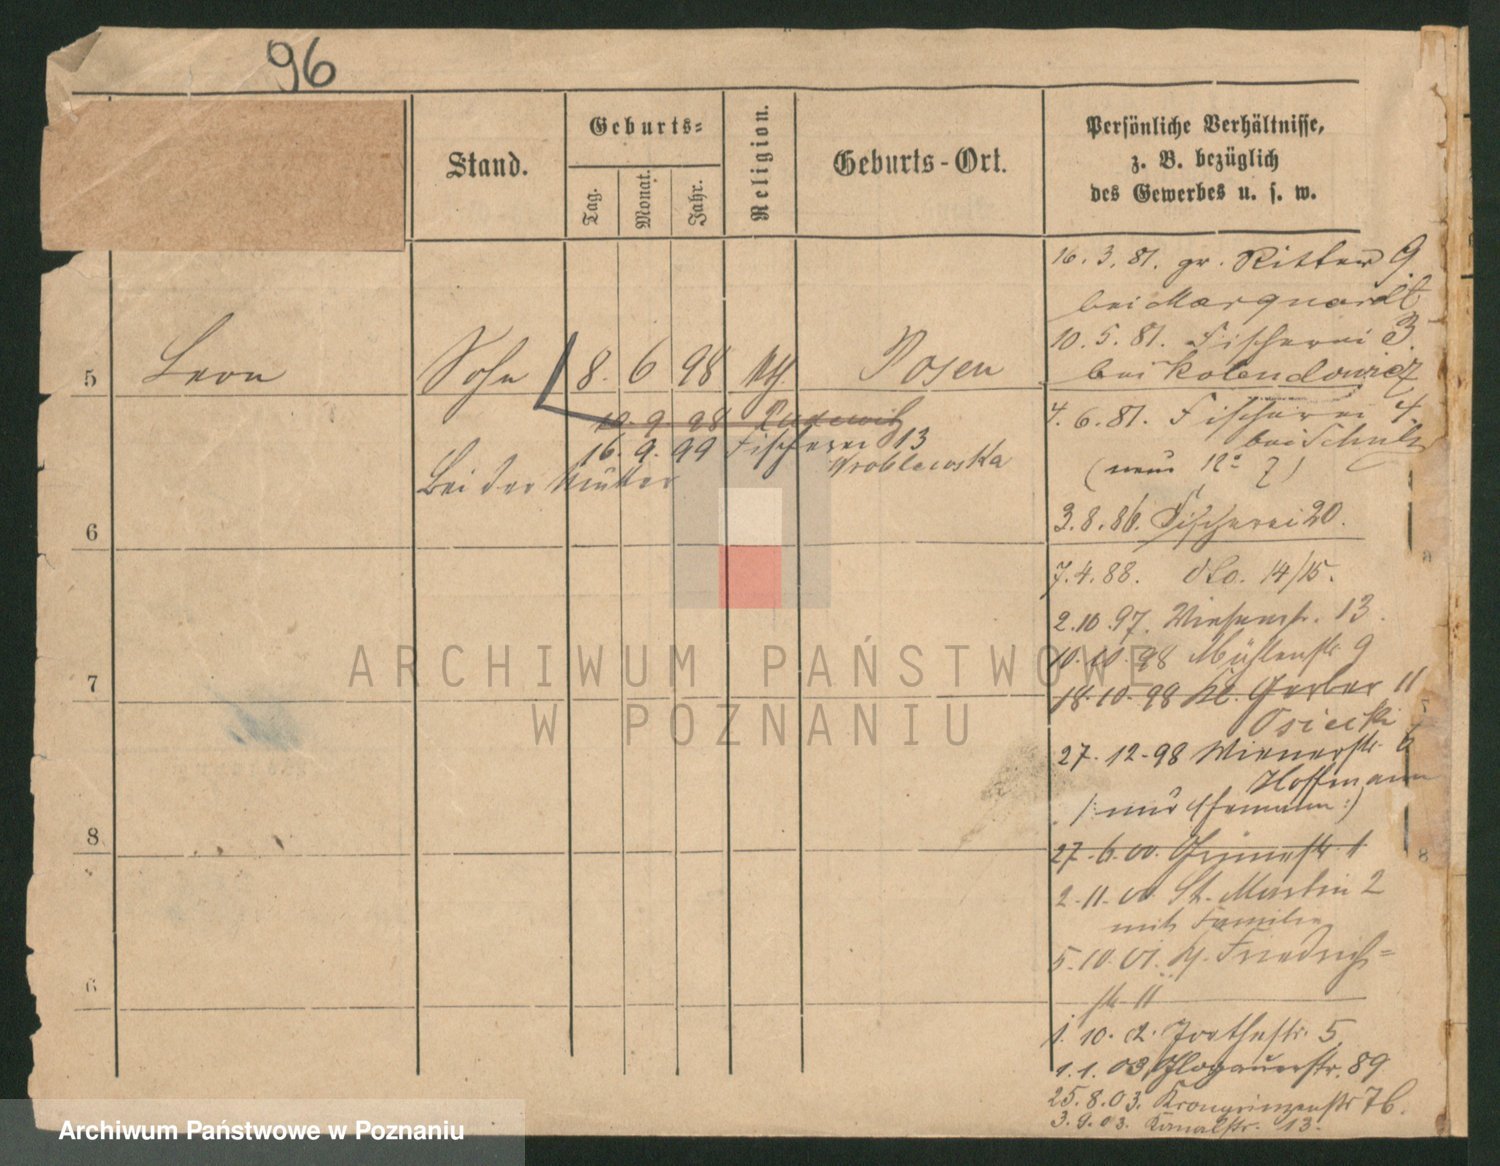 96
Stand.
Geburts=
Tag.
Monat.
Jahr.
Religion.
Geburts-Ort.
Persönliche Verhältnisse,
z. B. bezüglich
des Gewerbes u. s. w.
16. 3. 81. gr. Ritter 9
bei Marquardt
10. 5. 81. Fischerei 3.
bei Kolendowicz
5 Leon Sohn 8. 6 98 Posen
4. 6. 81. Fischerei 4.
bei Schulz
(neue No 7)
10. 9. 98
16. 9. 99 Fischerei 13
Wroblewska
Bei der Mutter
3. 8. 86. Fischerei 20.
6
7. 4. 88. dto. 14/15.
2. 10. 97. Wiesenstr. 13.
10. 10. 98 Mühlenstr. 9
7
18. 10. 98 Kl. Gerber 11
Osiecki
27. 12. 98 Wienerstr. 6
Hoffmann
/: nur Ehemann :/
8
27. 6. 00.
2. 11. 00. St. Martin 2
mit Familie
5. 10. 01. Friedrich=
str. 11
6
1. 10. 2. 5.
1. 1. 03. Glogauerstr. 89
25. 8. 03. Kronprinzenstr 76.
3. 9. 03. Kanalstr. 13.
8
ARCHIWUM PAŃSTWOWE
W POZNANIU
Archiwum Państwowe w Poznaniu